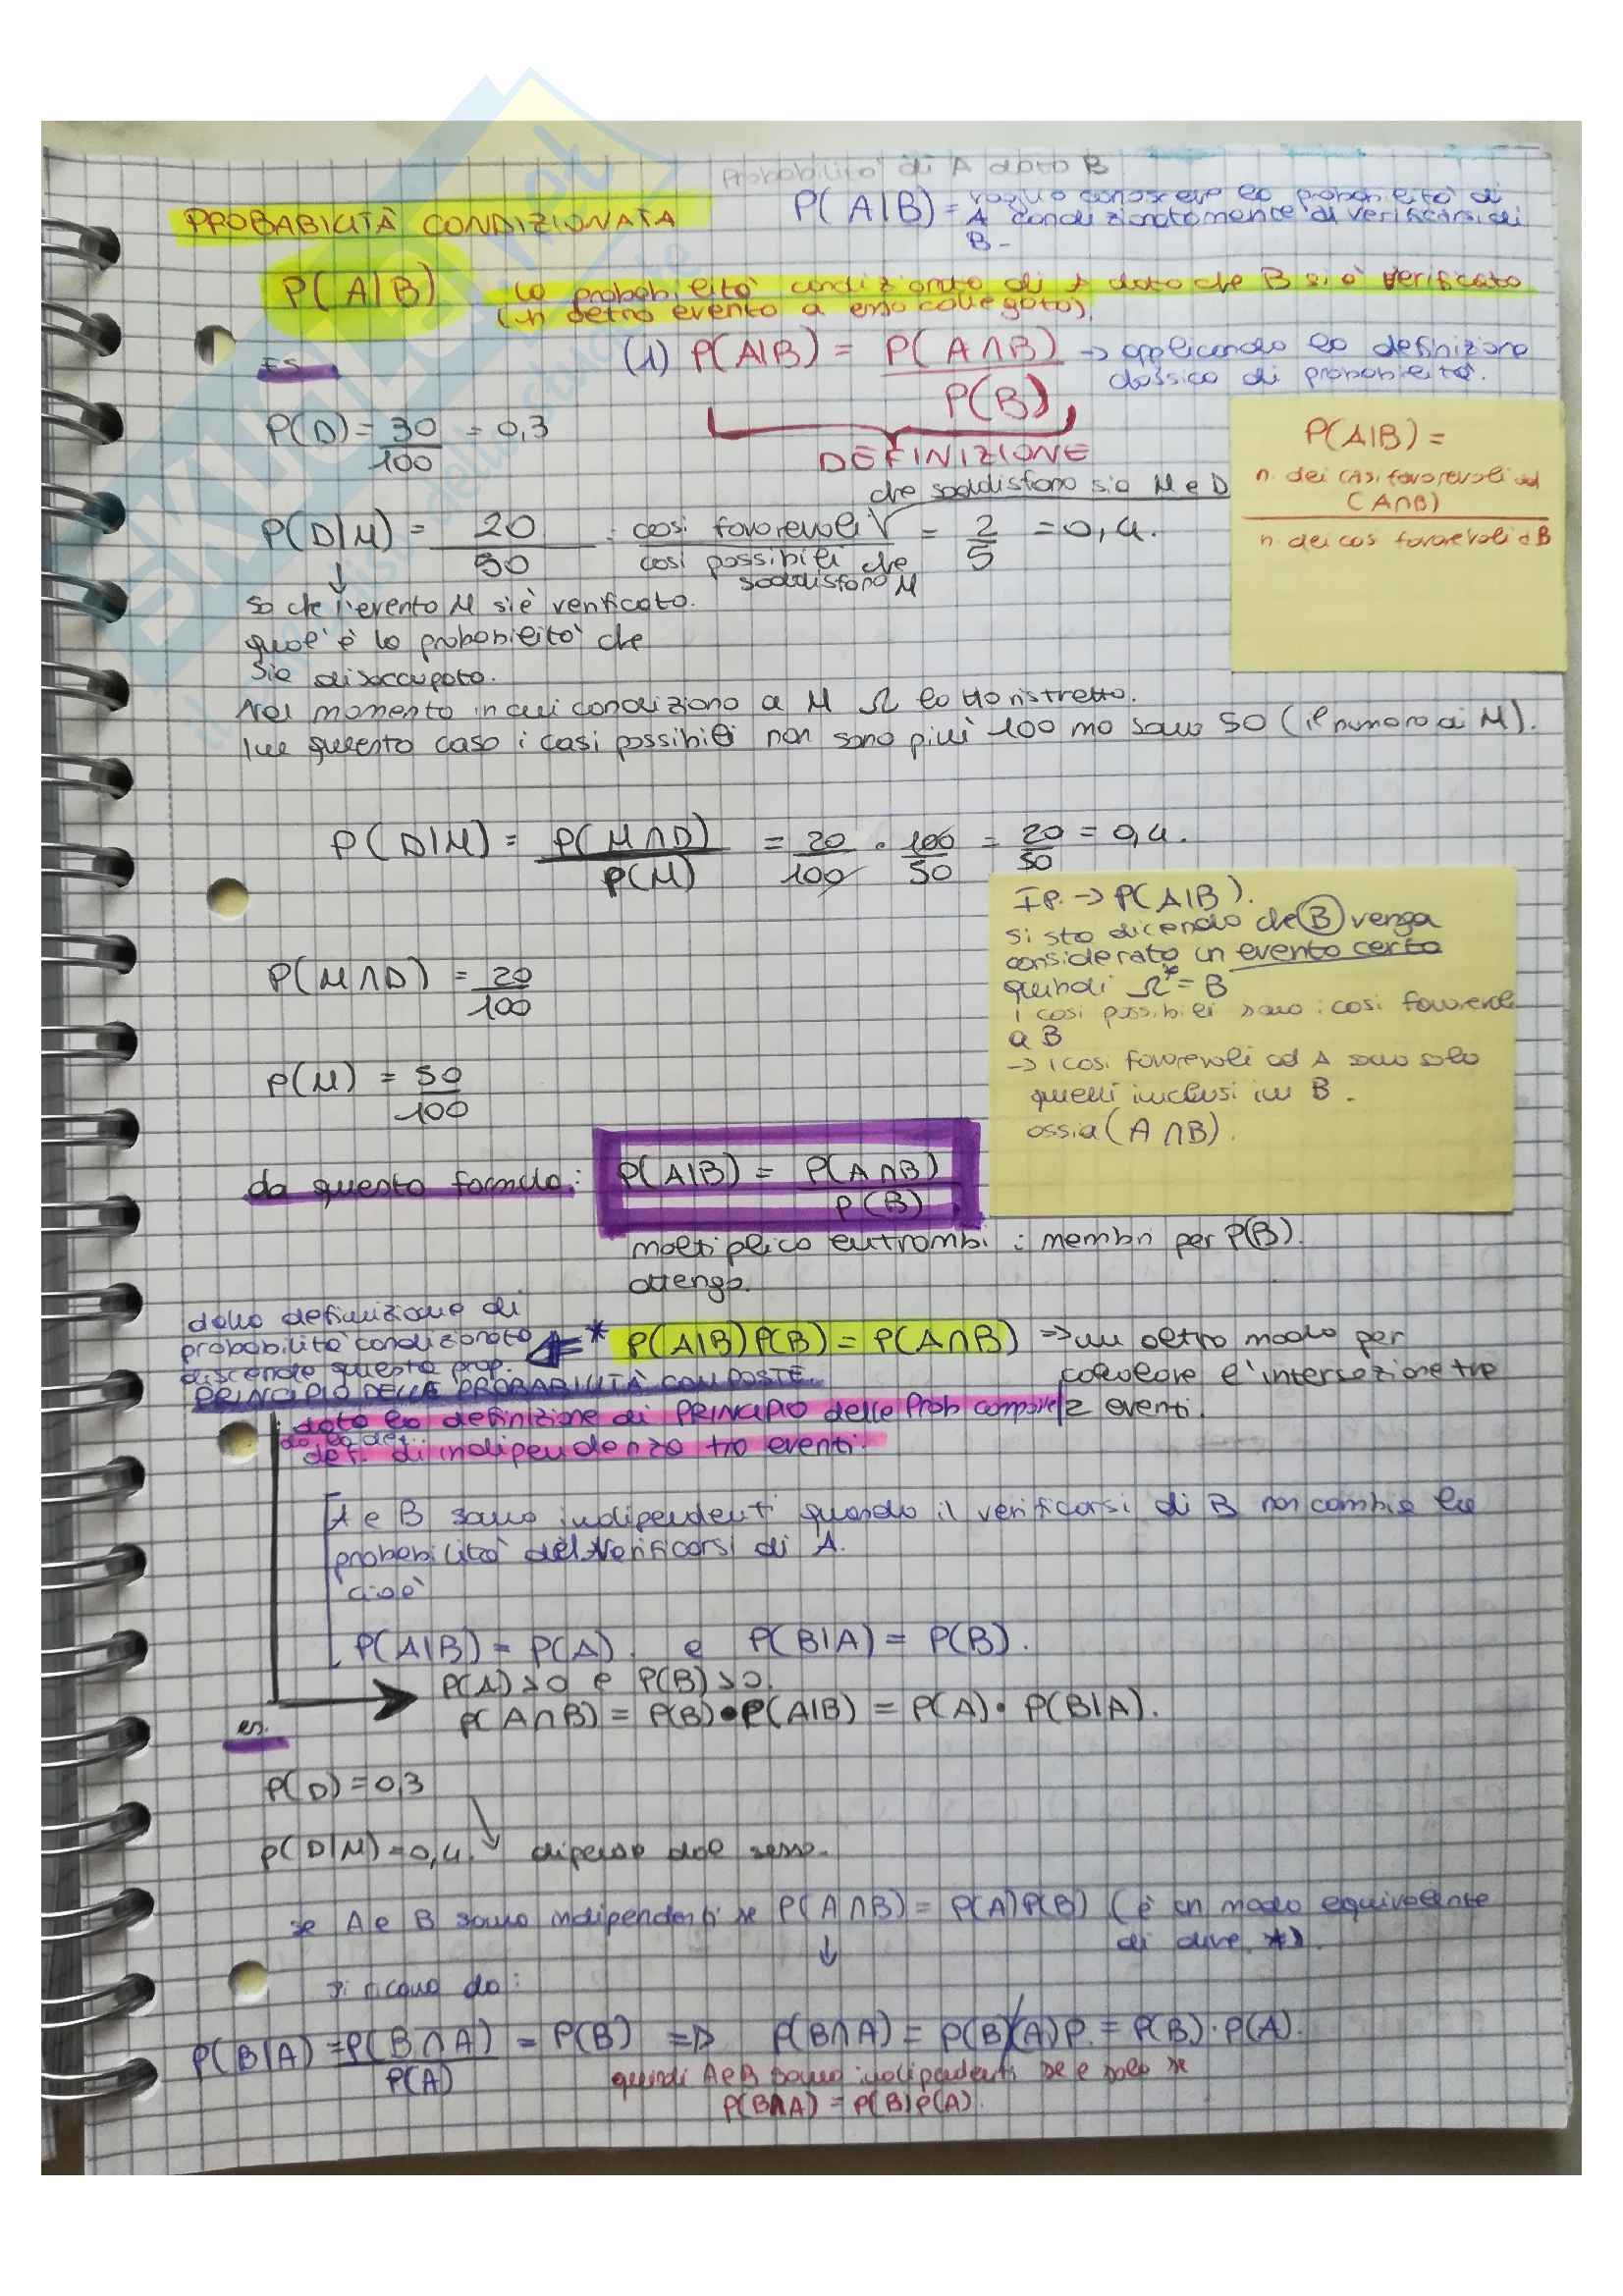 Probabilità di A dato B
PROBABILITÀ CONDIZIONATA
P(A|B) = voglio conoscere la probabilità di
A condizionatamente al verificarsi di
B -
P(A|B) la probabilità condizionata di A dato che B si è verificato
(un altro evento a esso collegato).
ES.
(1) P(A|B) = P(A∩B) / P(B) → applicando la definizione
classica di probabilità.
DEFINIZIONE
P(D) = 30/100 = 0,3
P(A|B) =
n. dei casi favorevoli ad
(A∩B)
n. dei casi favorevoli a B
che soddisfano sia M e D
P(D|M) = 20/50 = casi favorevoli / casi possibili che soddisfano M = 2/5 = 0,4.
↓
so che l'evento M si è verificato.
qual'è la probabilità che
sia disoccupato.
Nel momento in cui condiziono a M Ω l'ho ristretto.
In questo caso i casi possibili non sono più 100 ma sono 50 (il numero di M).
P(D|M) = P(M∩D) / P(M) = 20/100 · 100/50 = 20/50 = 0,4.
IP. → P(A|B).
si sta dicendo che B venga
considerato un evento certo
quindi Ω* = B
i casi possibili sono i casi favorevoli
a B
→ i casi favorevoli ad A sono solo
quelli inclusi in B.
ossia (A∩B).
P(M∩D) = 20/100
P(M) = 50/100
da questa formula: P(A|B) = P(A∩B) / P(B)
moltiplico entrambi i membri per P(B).
ottengo.
dalla definizione di
probabilità condizionata
discende questa prop.
* P(A|B)P(B) = P(A∩B) ⇒ un altro modo per
calcolare l'intersezione tra
2 eventi.
PRINCIPIO DELLE PROBABILITÀ COMPOSTE.
data la definizione di PRINCIPIO delle Prob composte
do la def.
def. di indipendenza tra eventi.
A e B sono indipendenti quando il verificarsi di B non cambia la
probabilità del verificarsi di A.
cioè
P(A|B) = P(A). e P(B|A) = P(B).
P(A) > 0 e P(B) > 0.
P(A∩B) = P(B) • P(A|B) = P(A) • P(B|A).
es.
P(D) = 0,3
P(D|M) = 0,4. dipende dal sesso.
se A e B sono indipendenti se P(A∩B) = P(A)P(B) (è un modo equivalente
di dire *).
↓
si ricava da:
P(B|A) = P(B∩A) / P(A) = P(B) ⇒ P(B∩A) = P(B)(A)P. = P(B)·P(A).
quindi A e B sono indipendenti se e solo se
P(B∩A) = P(B)P(A).